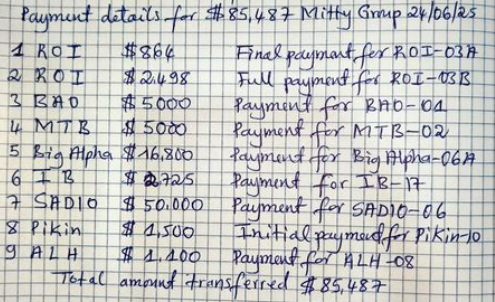 Payment details for $85,487 Mitty Group 24/06/25
1 ROI $864 Final payment for ROI-03A
2 ROI $2,498 Full payment for ROI-03B
3 BAO $5000 Payment for BAO-01
4 MTB $5000 Payment for MTB-02
5 Big Alpha $16,800 Payment for Big Alpha-06A
6 IB $2,725 Payment for IB-17
7 SADIO $50,000 Payment for SADIO-06
8 Pikin $1,500 Initial payment for Pikin-10
9 ALH $1,100 Payment for ALH-08
Total amount transferred $85,487